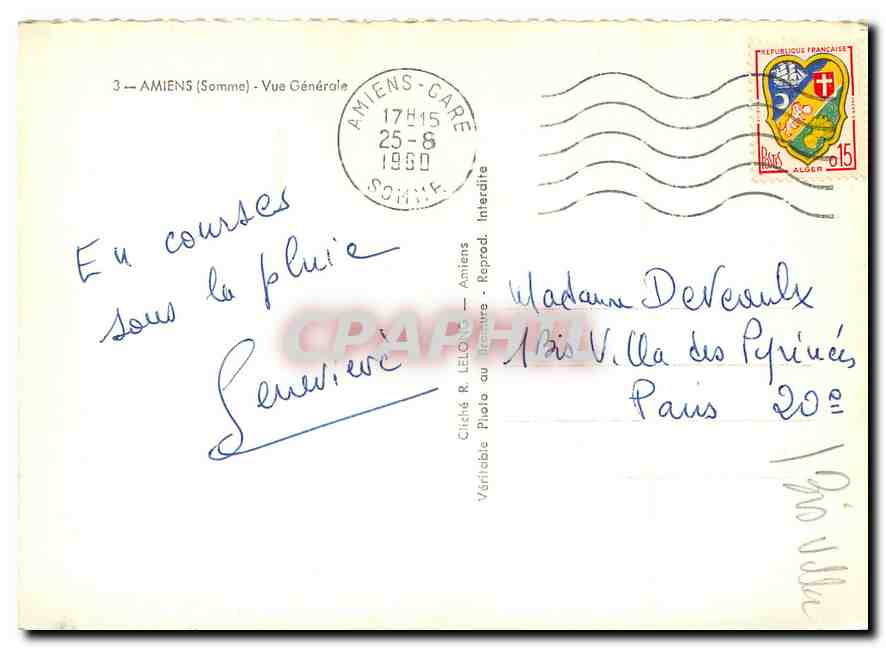 3 — AMIENS (Somme) - Vue Générale
AMIENS-GARE
17H15
25-8
1960
SOMME
REPUBLIQUE FRANÇAISE
POSTES
0,15
ALGER
En courses
sous la pluie
Geneviève
Cliché R. LELONG — Amiens
Véritable Photo au Bromure - Reprod. Interdite
Madame Deveaulx
1 Bis Villa des Pyrénées
Paris 20e
1 Bis Villa
CPAPHIL